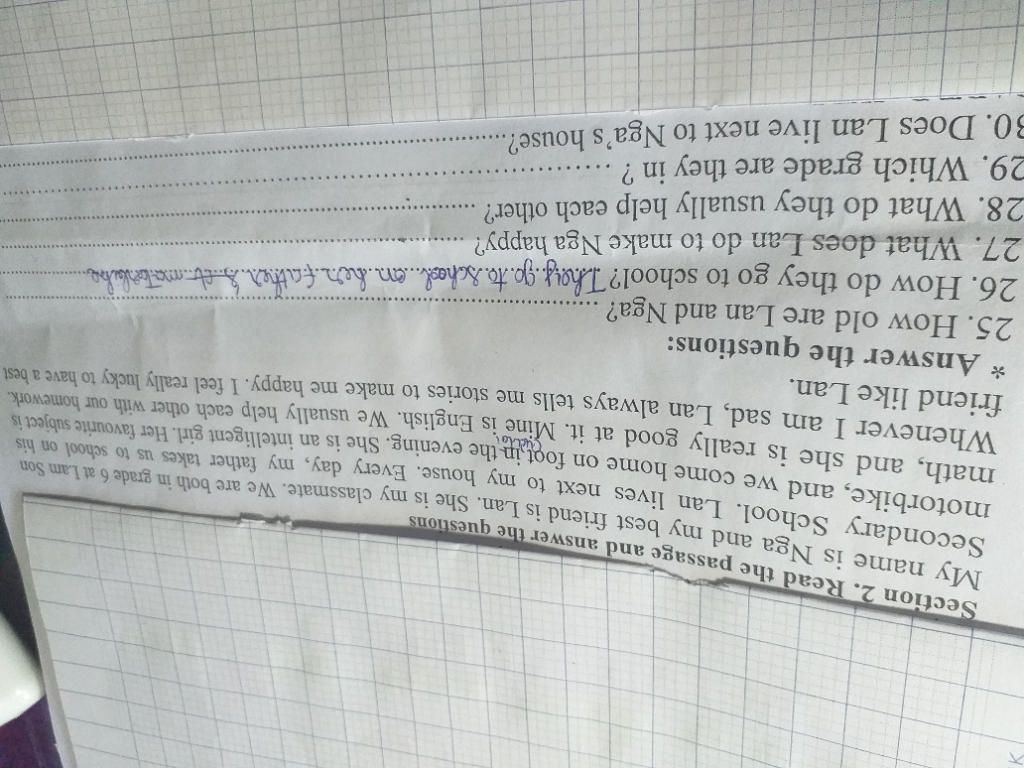 Section 2. Read the passage and answer the questions
My name is Nga and my best friend is Lan. She is my classmate. We are both in grade 6 at Lam Son
Secondary School. Lan lives next to my house. Every day, my father takes us to school on his
motorbike, and we come home on foot in the evening. She is an intelligent girl. Her favourite subject is
math, and she is really good at it. Mine is English. We usually help each other with our homework.
Whenever I am sad, Lan always tells me stories to make me happy. I feel really lucky to have a best
friend like Lan.
* Answer the questions:
25. How old are Lan and Nga? ..........
26. How do they go to school? They go to school on her father's
27. What does Lan do to make Nga happy? ..........
28. What do they usually help each other? ..........
29. Which grade are they in ? ..........
30. Does Lan live next to Nga's house? ..........